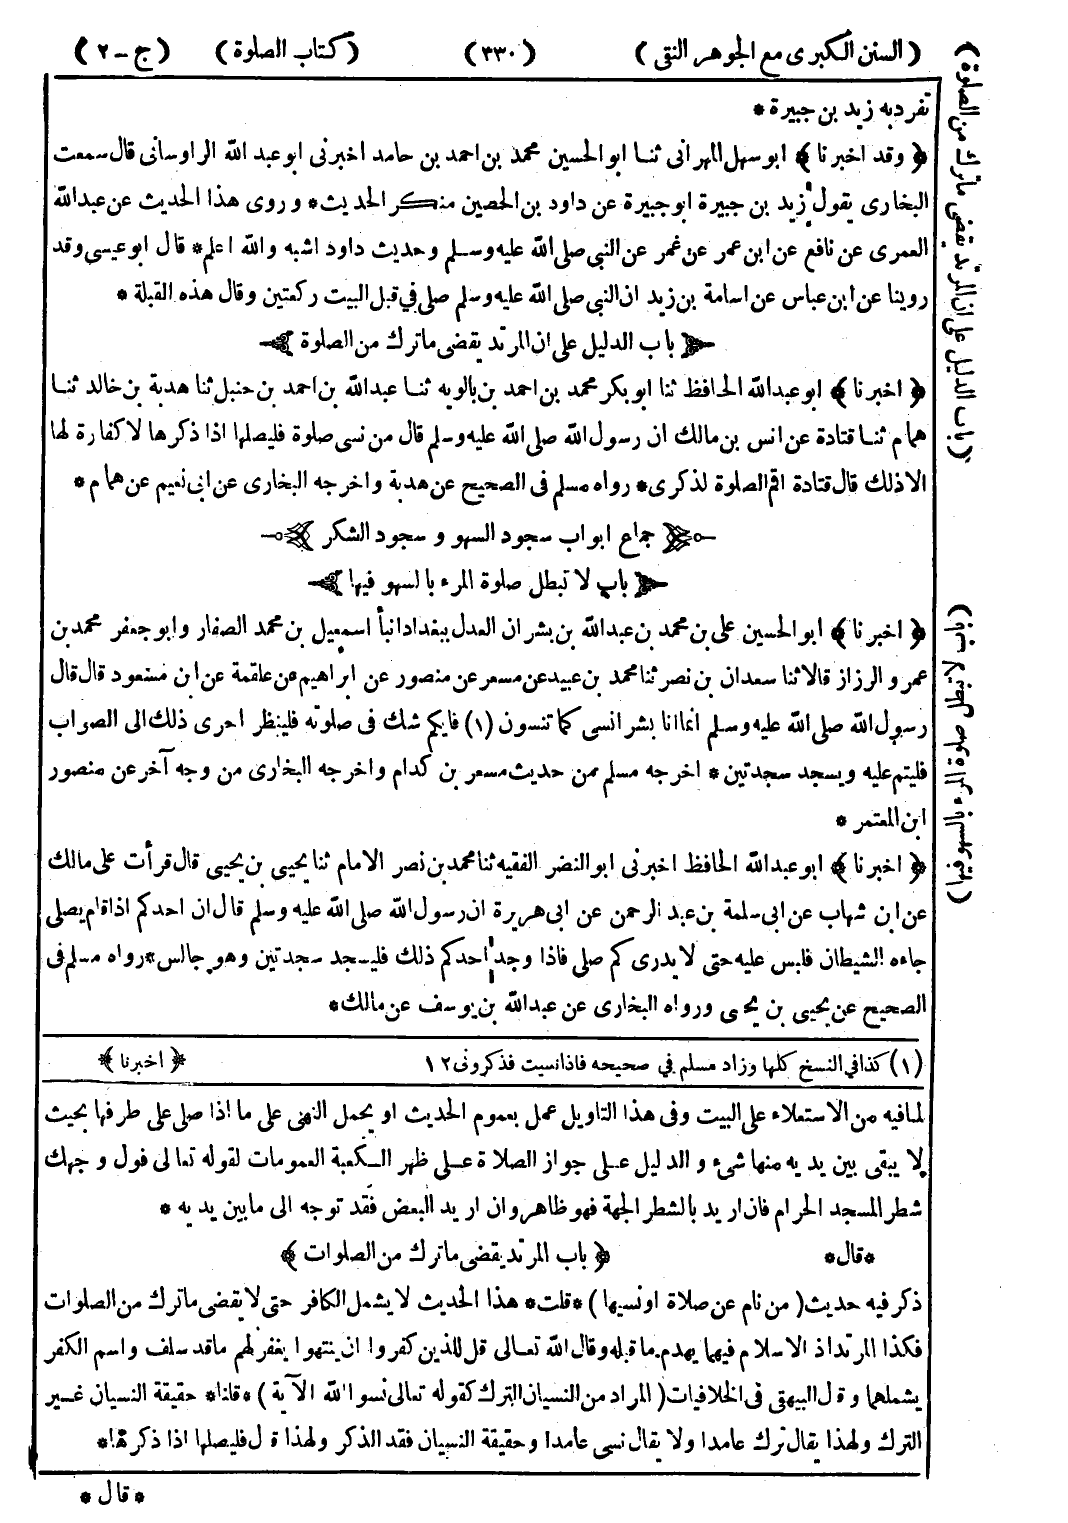 ( السنن الكبرى مع الجوهر النقى ) ( ٣٣٠ ) ( كتاب الصلوة ) ( ج - ٢ )
تفرد به زيد بن جبيرة *
﴿ وقد اخبرنا ﴾ ابو سهل المهرانى ثنا ابو الحسين محمد بن احمد بن حامد اخبرنى ابو عبد الله الراوسانى قال سمعت
البخارى يقول زيد بن جبيرة ابو جبيرة عن داود بن الحصين منكر الحديث * و روى هذا الحديث عن عبدالله
العمرى عن نافع عن ابن عمر عن عمر عن النبى صلى الله عليه وسلم وحديث داود اشبه والله اعلم * قال ابو عيسى وقد
روينا عن ابن عباس عن اسامة بن زيد ان النبى صلى الله عليه وسلم صلى في قبل البيت ركعتين وقال هذه القبلة *
باب الدليل على ان المرتد يقضى ماترك من الصلوة
﴿ اخبرنا ﴾ ابو عبدالله الحافظ ثنا ابو بكر محمد بن احمد بن بالويه ثنا عبدالله بن احمد بن حنبل ثنا هدبة بن خالد ثنا
همام ثنا قتادة عن انس بن مالك ان رسول الله صلى الله عليه وسلم قال من نسى صلوة فليصلها اذا ذكرها لا كفارة لها
الا ذلك قال قتادة اقم الصلوة لذكرى * رواه مسلم فى الصحيح عن هدبة واخرجه البخارى عن ابى نعيم عن همام *
جماع ابواب سجود السهو و سجود الشكر
باب لا تبطل صلوة المرء بالسهو فيها
﴿ اخبرنا ﴾ ابو الحسين على بن محمد بن عبدالله بن بشران العدل ببغداد انبأ اسمعيل بن محمد الصفار وابو جعفر محمد بن
عمرو الرزاز قالا ثنا سعدان بن نصر ثنا محمد بن عبيد عن مسعر عن منصور عن ابراهيم عن علقمة عن ابن مسعود قال قال
رسول الله صلى الله عليه وسلم انما انا بشر انسى كما تنسون (١) فايكم شك فى صلوته فلينظر احرى ذلك الى الصواب
فليتم عليه ويسجد سجدتين * اخرجه مسلم من حديث مسعر بن كدام واخرجه البخارى من وجه آخر عن منصور
ابن المعتمر *
﴿ اخبرنا ﴾ ابو عبدالله الحافظ اخبرنى ابو النضر الفقيه ثنا محمد بن نصر الامام ثنا يحيى بن يحيى قال قرأت على مالك
عن ابن شهاب عن ابى سلمة بن عبد الرحمن عن ابى هريرة ان رسول الله صلى الله عليه وسلم قال ان احدكم اذا قام يصلى
جاءه الشيطان فلبس عليه حتى لا يدرى كم صلى فاذا وجد احدكم ذلك فليسجد سجدتين وهو جالس * رواه مسلم فى
الصحيح عن يحيى بن يحيى ورواه البخارى عن عبدالله بن يوسف عن مالك *
(١) كذا في النسخ كلها وزاد مسلم في صحيحه فاذا نسيت فذكرونى ١٢ ﴿ اخبرنا ﴾
لما فيه من الاستعلاء على البيت وفى هذا التاويل عمل بعموم الحديث او يحمل النهى على ما اذا صلى على طرفها بحيث
لا يبقى بين يديه منها شىء و الدليل على جواز الصلاة على ظهر الكعبة العمومات لقوله تعالى فول وجهك
شطر المسجد الحرام فان اريد بالشطر الجهة فهو ظاهر وان اريد البعض فقد توجه الى مابين يديه *
* قال * ﴿ باب المرتد يقضى ماترك من الصلوات ﴾
ذكر فيه حديث ( من نام عن صلاة او نسيها ) * قلت * هذا الحديث لا يشمل الكافر حتى لا يقضى ماترك من الصلوات
فكذا المرتد اذ الاسلام فيهما يهدم ما قبله وقال الله تعالى قل للذين كفروا ان ينتهوا يغفر لهم ماقد سلف واسم الكفر
يشملهما و قال البيهقى فى الخلافيات ( المراد من النسيان الترك كقوله تعالى نسوا الله الآية ) * قلنا * حقيقة النسيان غير
الترك ولهذا يقال ترك عامدا ولا يقال نسى عامدا وحقيقة النسيان فقد الذكر ولهذا قال فليصلها اذا ذكرها *
* قال *
( باب الدليل على ان المرتد يقضى ماترك من الصلوة )